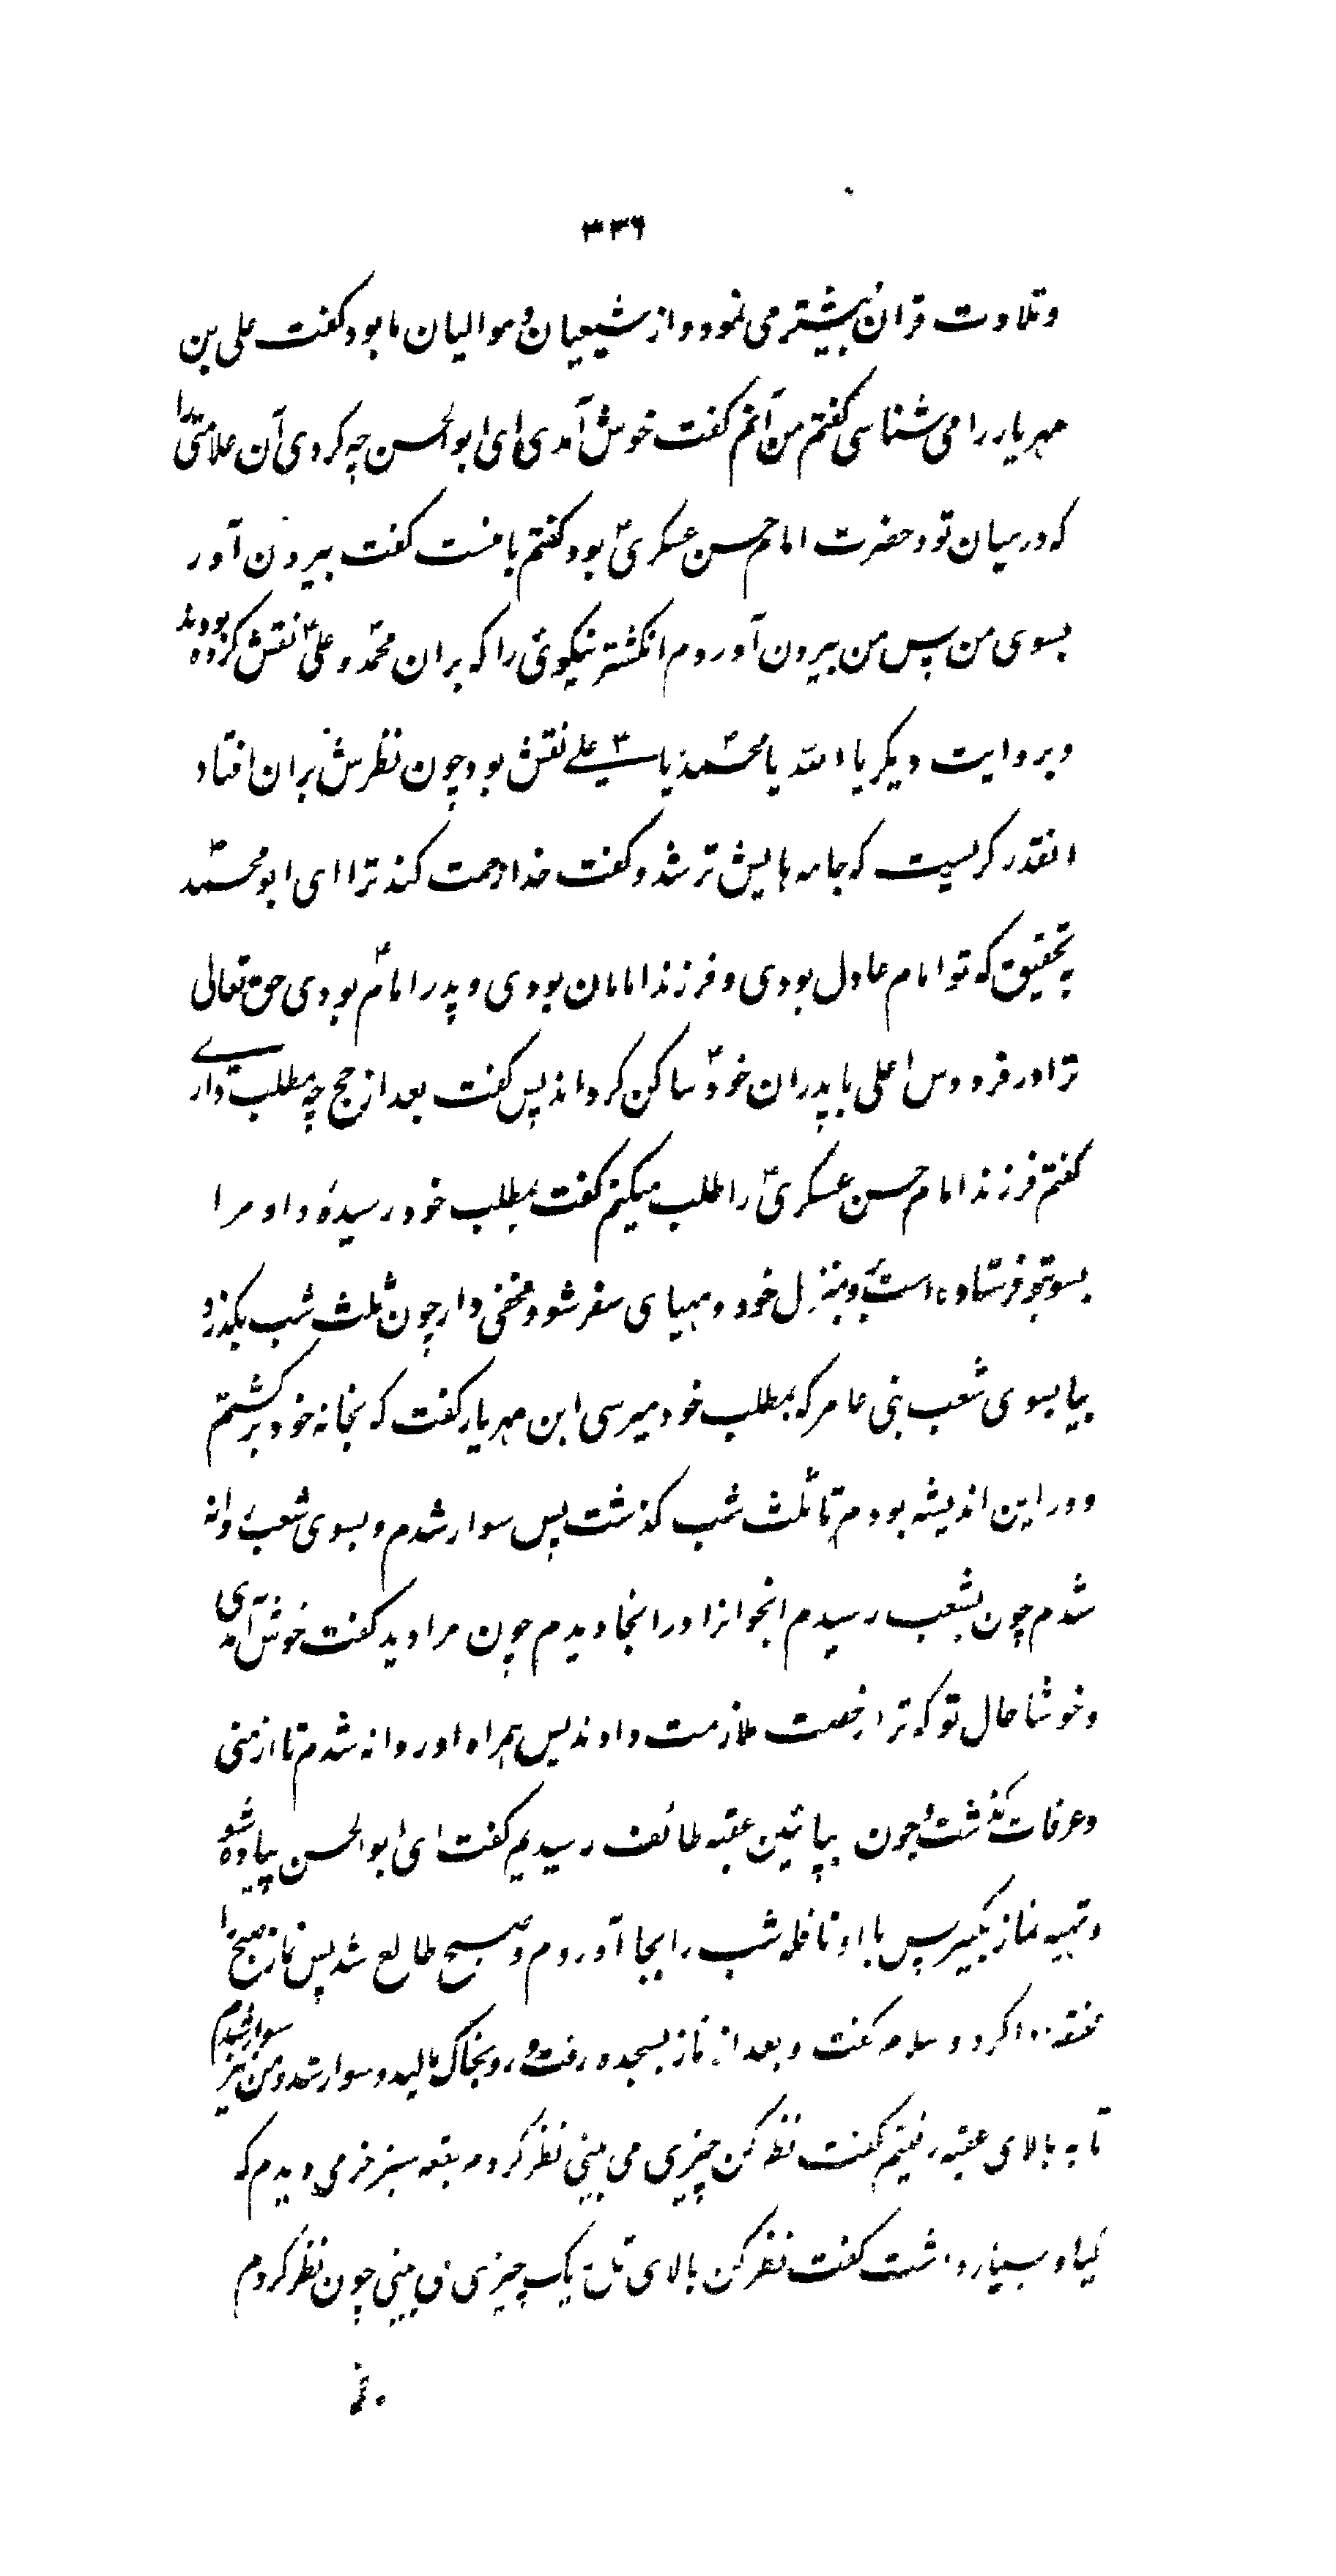 ۳۳۶
وتلاوت قرآن بیشتر می نمود و از شیعیان و موالیان ما بود کفت علی بن
مهریار را می شناسی کفتم من آنم کفت خوش آمدی ای ابو الحسن چه کردی آن علامتی را
که در میان تو و حضرت امام حسن عسکریؑ بود کفتم با منست کفت بیرون آور
بسوی من پس من بیرون آوردم انکشتر نیکوئی را که بران محمدؐ و علیؑ نقش کرده بودند
و بروایت دیکر یا الله یا محمد یا علی نقش بود چون نظرش بران افتاد
انقدر کریست که جامه هایش تر شد و کفت خدا رحمت کند ترا ای ابو محمدؑ
بتحقیق که تو امام عادل بودی و فرزند امامان بودی و پدر امامؑ بودی حق تعالی
ترا در فردوس اعلی با پدران خودؑ ساکن کرداند پس کفت بعد از حج چه مطلب داری
کفتم فرزند امام حسن عسکریؑ را طلب میکنم کفت بمطلب خود رسیدهٔ و او مرا
بسوتیو فرستاده است برو بمنزل خود و مهیای سفر شو و مخفی دار چون ثلث شب بکذرد
بیا بسوی شعب بنی عامر که بمطلب خود میرسی ابن مهریار کفت که بخانه خود برکشتم
و در این اندیشه بودم تا ثلث شب کذشت پس سوار شدم و بسوی شعب روانه
شدم چون بشعب رسیدم انجوانرا در انجا دیدم چون مرا دید کفت خوش آمدی
و خوشا حال تو که ترا رخصت ملازمت دادند پس همراه او روانه شدم تا از منی
و عرفات کذشت و چون بپائین عقبه طائف رسیدیم کفت ای ابو الحسن پیاده شو
و تهیه نماز بکیر پس با او نافله شب را بجا آوردم و صبح طالع شد پس نماز صبح را
مختصر ادا کرد و سلام کفت و بعد از نماز بسجده رفت و رو بخاک مالید و سوار شد و من نیز سوار شدم
تا به بالای عقبه رفتیم کفت نظر کن چیزی می بینی نظر کردم بقعه سبز خرمی دیدم که
کیاه بسیار داشت کفت نظر کن بالای تل ریک چیزی می بینی چون نظر کردم